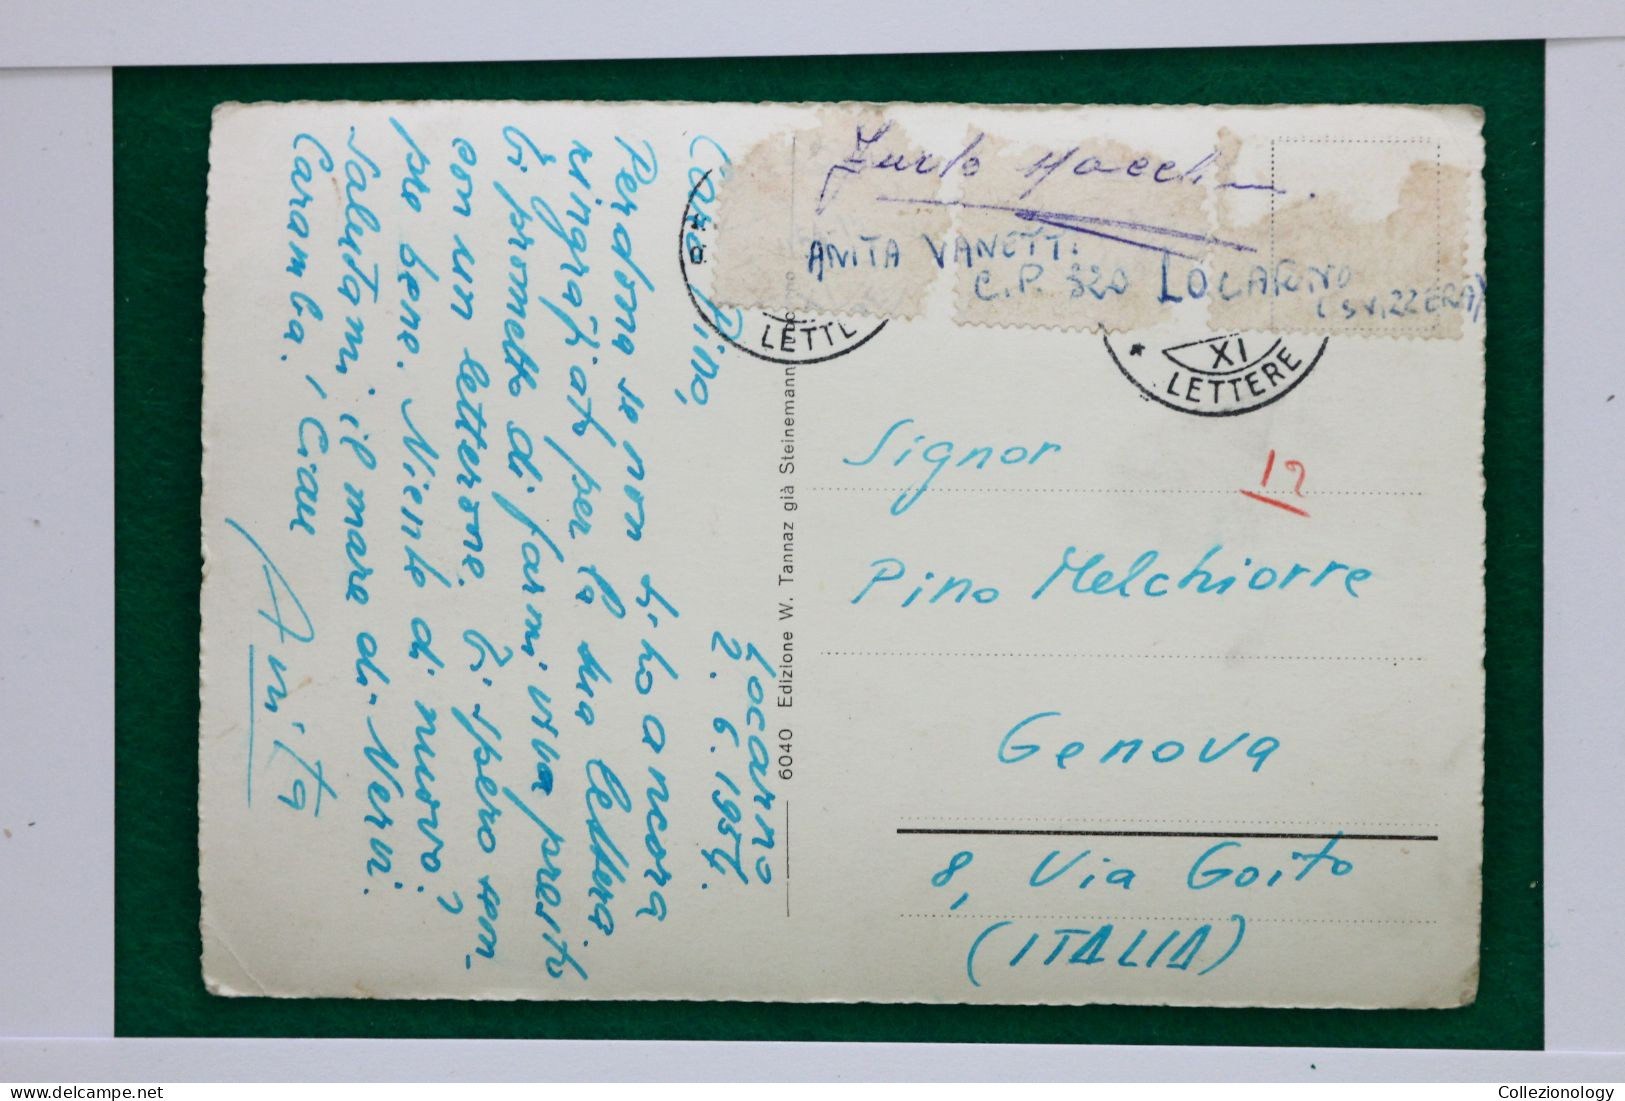 Locarno
2.6.1954.
Caro Pino,
Perdona se non ti ho ancora
ringraziato per la tua lettera
Ti prometto di farmi viva presto
con un letterone. Ti spero sem-
pre bene. Niente di nuovo?
Salutami il mare di Nervi.
Caramba! Ciau
Anita
6040 Edizione W. Tannaz già Steinemann
ANITA VANETTI
C.P. 320 LOCARNO
(SVIZZERA)
LETTE
XI
LETTERE
12
Signor
Pino Melchiorre
Genova
8, Via Goito
(ITALIA)
Collezionology